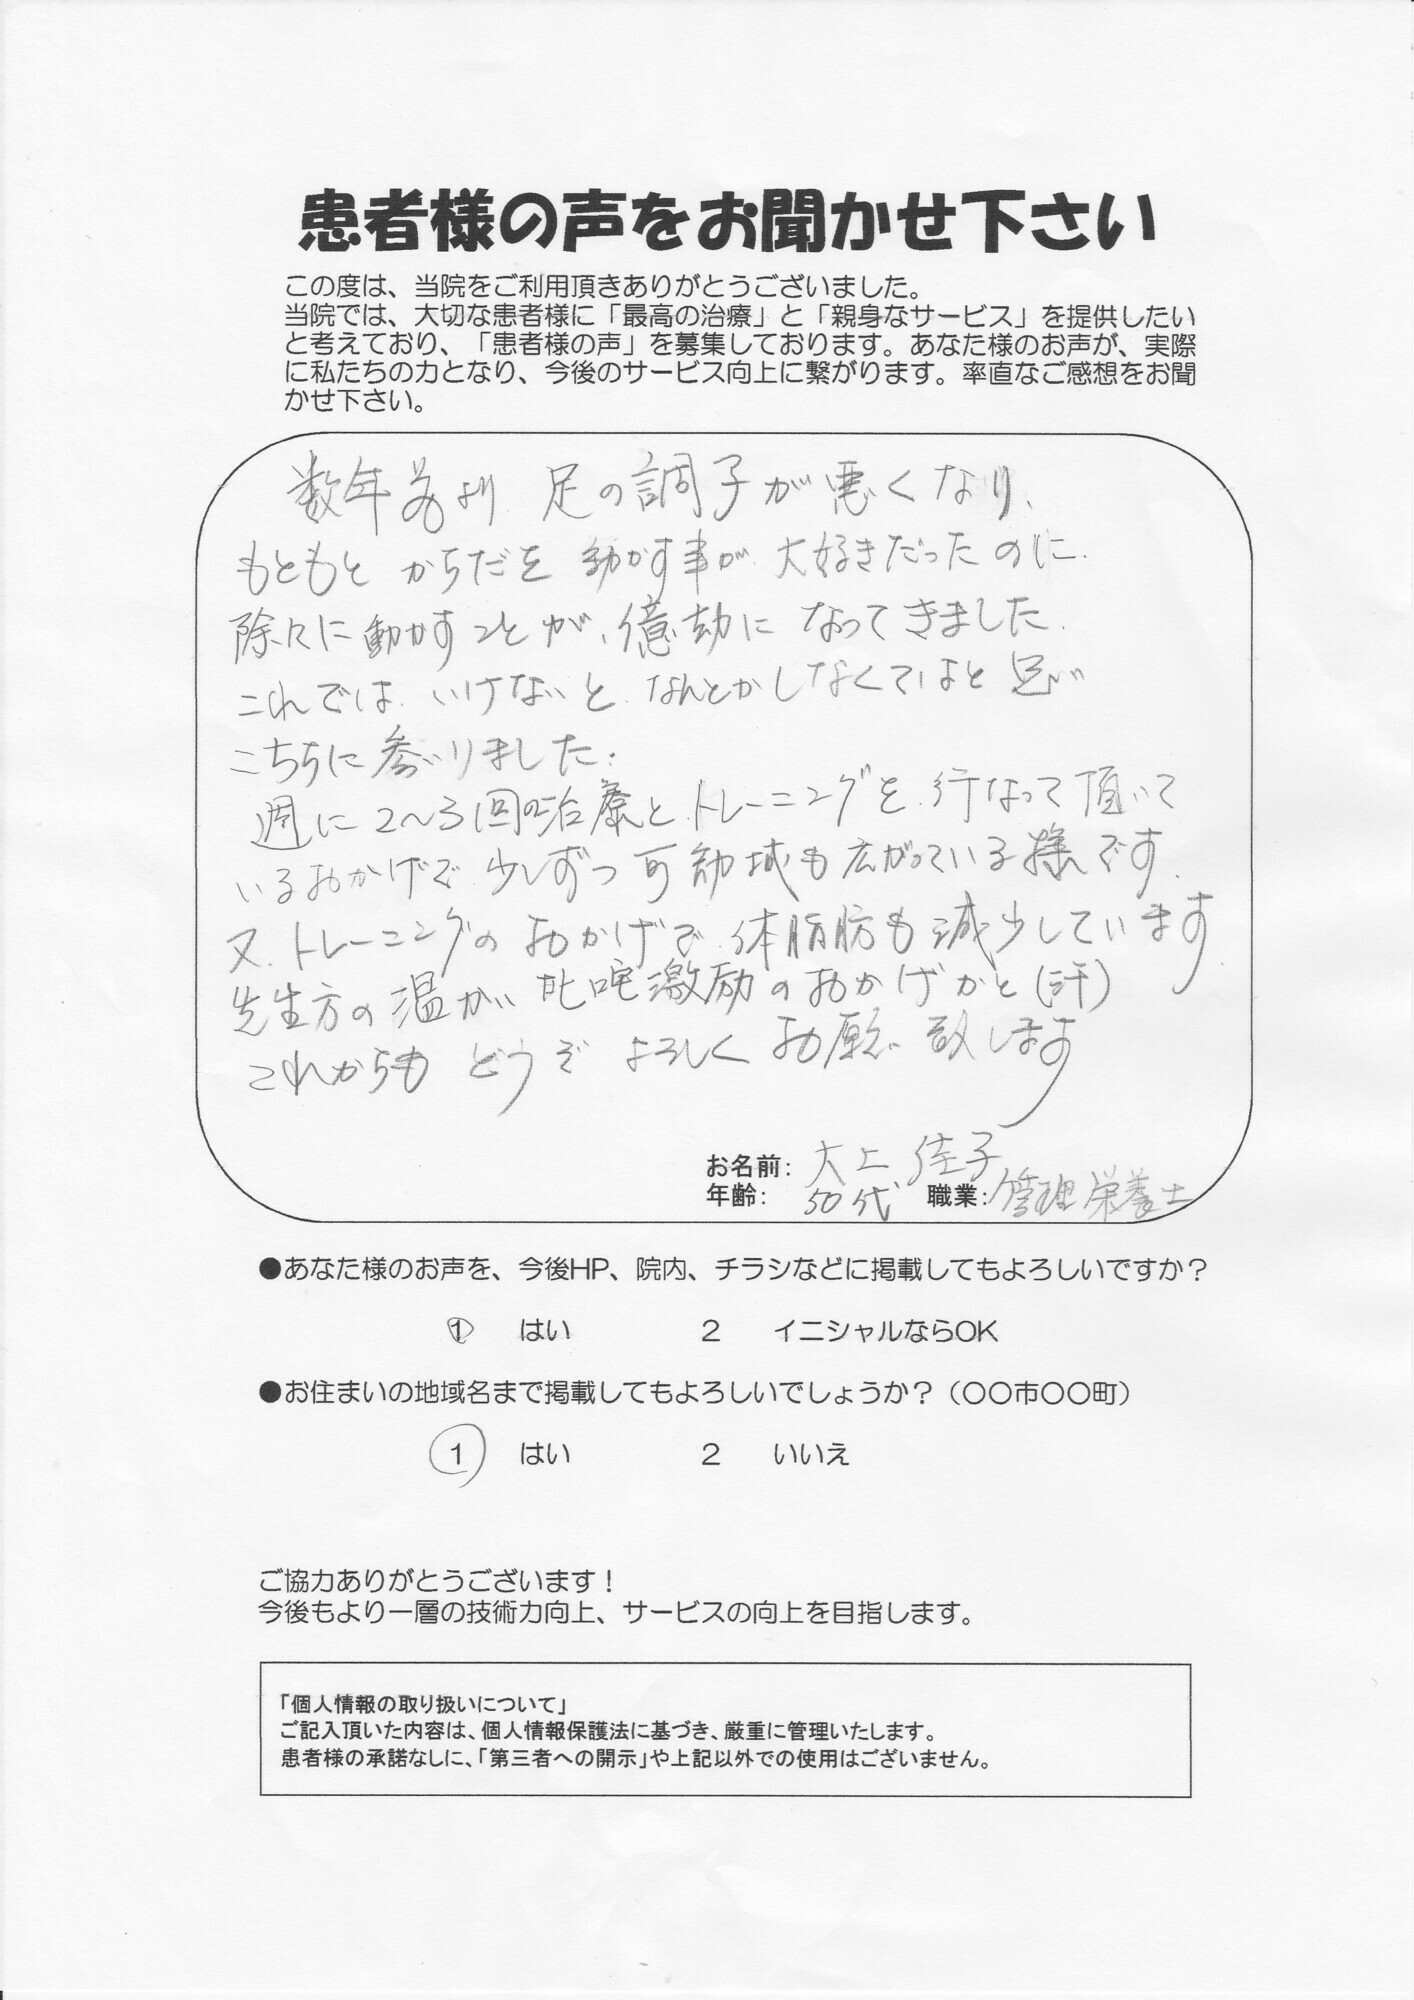 患者様の声をお聞かせ下さい
この度は、当院をご利用頂きありがとうございました。
当院では、大切な患者様に「最高の治療」と「親身なサービス」を提供したい
と考えており、「患者様の声」を募集しております。あなた様のお声が、実際
に私たちの力となり、今後のサービス向上に繋がります。率直なご感想をお聞
かせ下さい。
数年前より 足の調子が悪くなり、
もともと からだを 動かす事が 大好きだったのに
除々に動かすことが、億劫に なってきました
これでは いけないと なんとかしなくてはと 思い
こちらに 参いりました.
週に 2〜3回の治療と トレーニングを 行なって 頂いて
いるおかげで 少しずつ 可動域も 広がっている様です.
又、トレーニングの おかげで 体脂肪も 減少しています
先生方の 温かい 叱咤激励のおかげかと(汗)
これからも どうぞ よろしく お願い 致します
お名前: 大上 佳子
年齢: 50代 職業: 管理栄養士
●あなた様のお声を、今後HP、院内、チラシなどに掲載してもよろしいですか？
1 はい 2 イニシャルならOK
●お住まいの地域名まで掲載してもよろしいでしょうか？（〇〇市〇〇町）
1 はい 2 いいえ
ご協力ありがとうございます！
今後もより一層の技術力向上、サービスの向上を目指します。
「個人情報の取り扱いについて」
ご記入頂いた内容は、個人情報保護法に基づき、厳重に管理いたします。
患者様の承諾なしに、「第三者への開示」や上記以外での使用はございません。